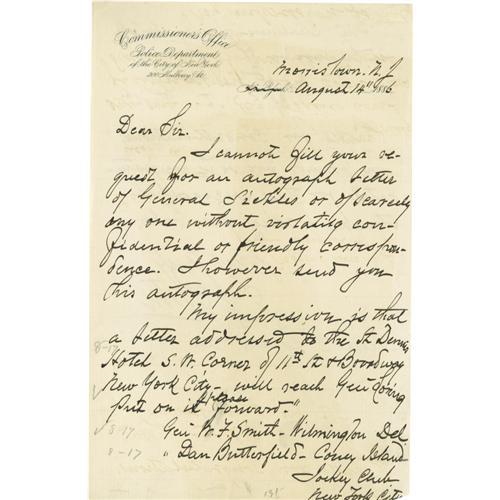 Commissioner's Office
Police Department
of the City of New York
300 Mulberry St.
Morristown. N. J
August 14" 1886
Dear Sir.
I cannot fill your re-
quest for an autograph letter
of General Sickles or of scarcely
any one without violating con-
fidential or friendly correspon-
dence. I however send you
his autograph.
My impression is that
a letter addressed to the St Denis
8-17
Hotel S. W. Corner of 11th St & Broadway
New York City - will reach Gen
put on it "please forward."
8-17
Gen W. F. Smith - Wilmington Del
8-17
" Dan Butterfield - Coney Island
Jockey Club
New York City